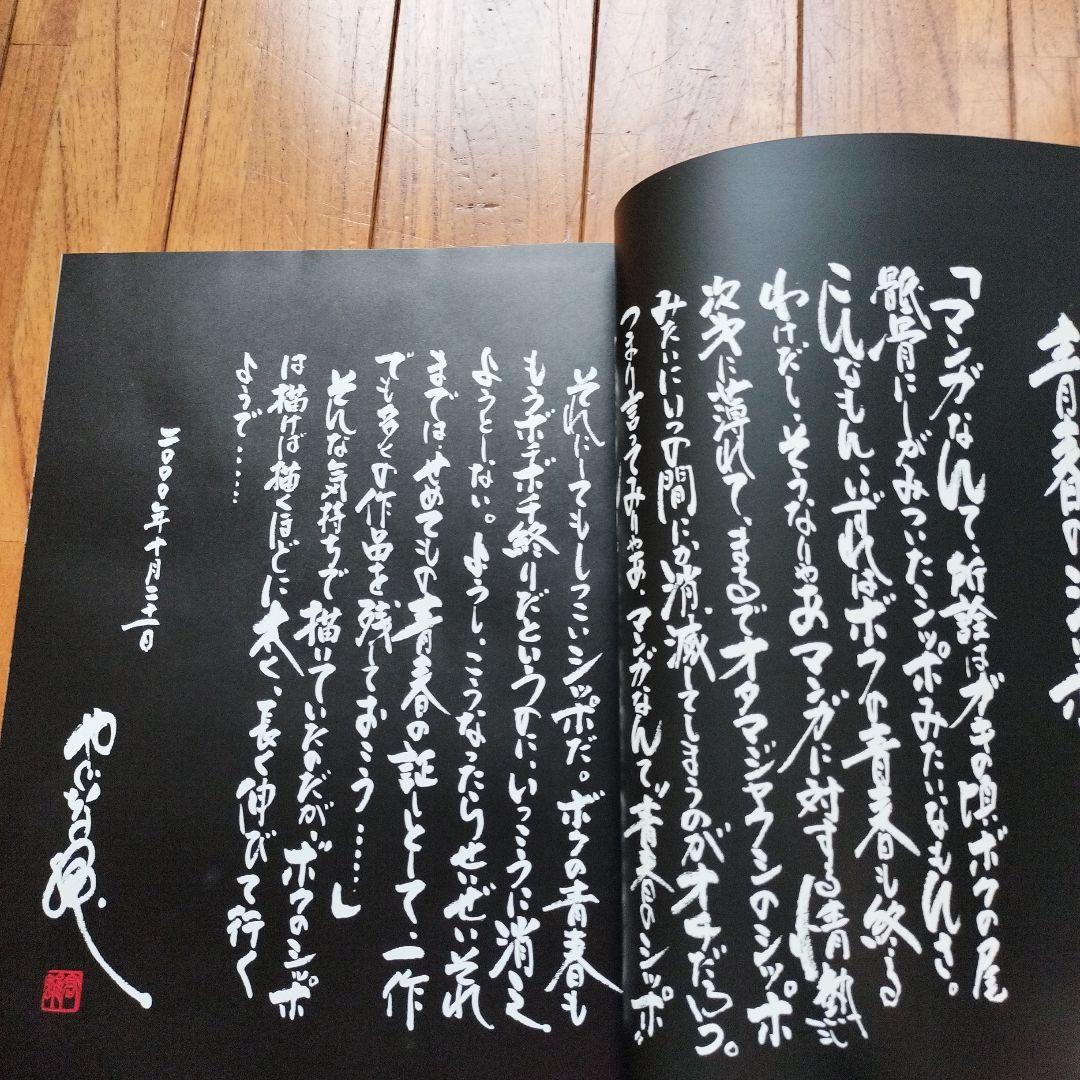 青春の
「マンガなんて、所詮はガキの頃、ボクの尾
骶骨にしがみついたシッポみたいなもんさ。
こんなもん、いずれはボクの青春も終る
わけだし、そうなりゃあマンガに対する情熱も
次第に薄れて、まるでオタマジャクシのシッポ
みたいにいつの間にか消滅してしまうのがオチだろう。
つまり言ってみりゃあ、マンガなんて〝青春のシッポ〟
それにしてもしつこいシッポだ。ボクの青春も
もうボチボチ終りだというのに、いっこうに消え
ようとしない。ようし、こうなったらせいぜいそれ
までは、せめてもの青春の証しとして、一作
でも多くの作品を残しておこう……」
そんな気持ちで描いていたのだが、ボクのシッポ
は描けば描くほどに太く、長く伸びて行く
ようで……
二〇〇〇年十月二十一日